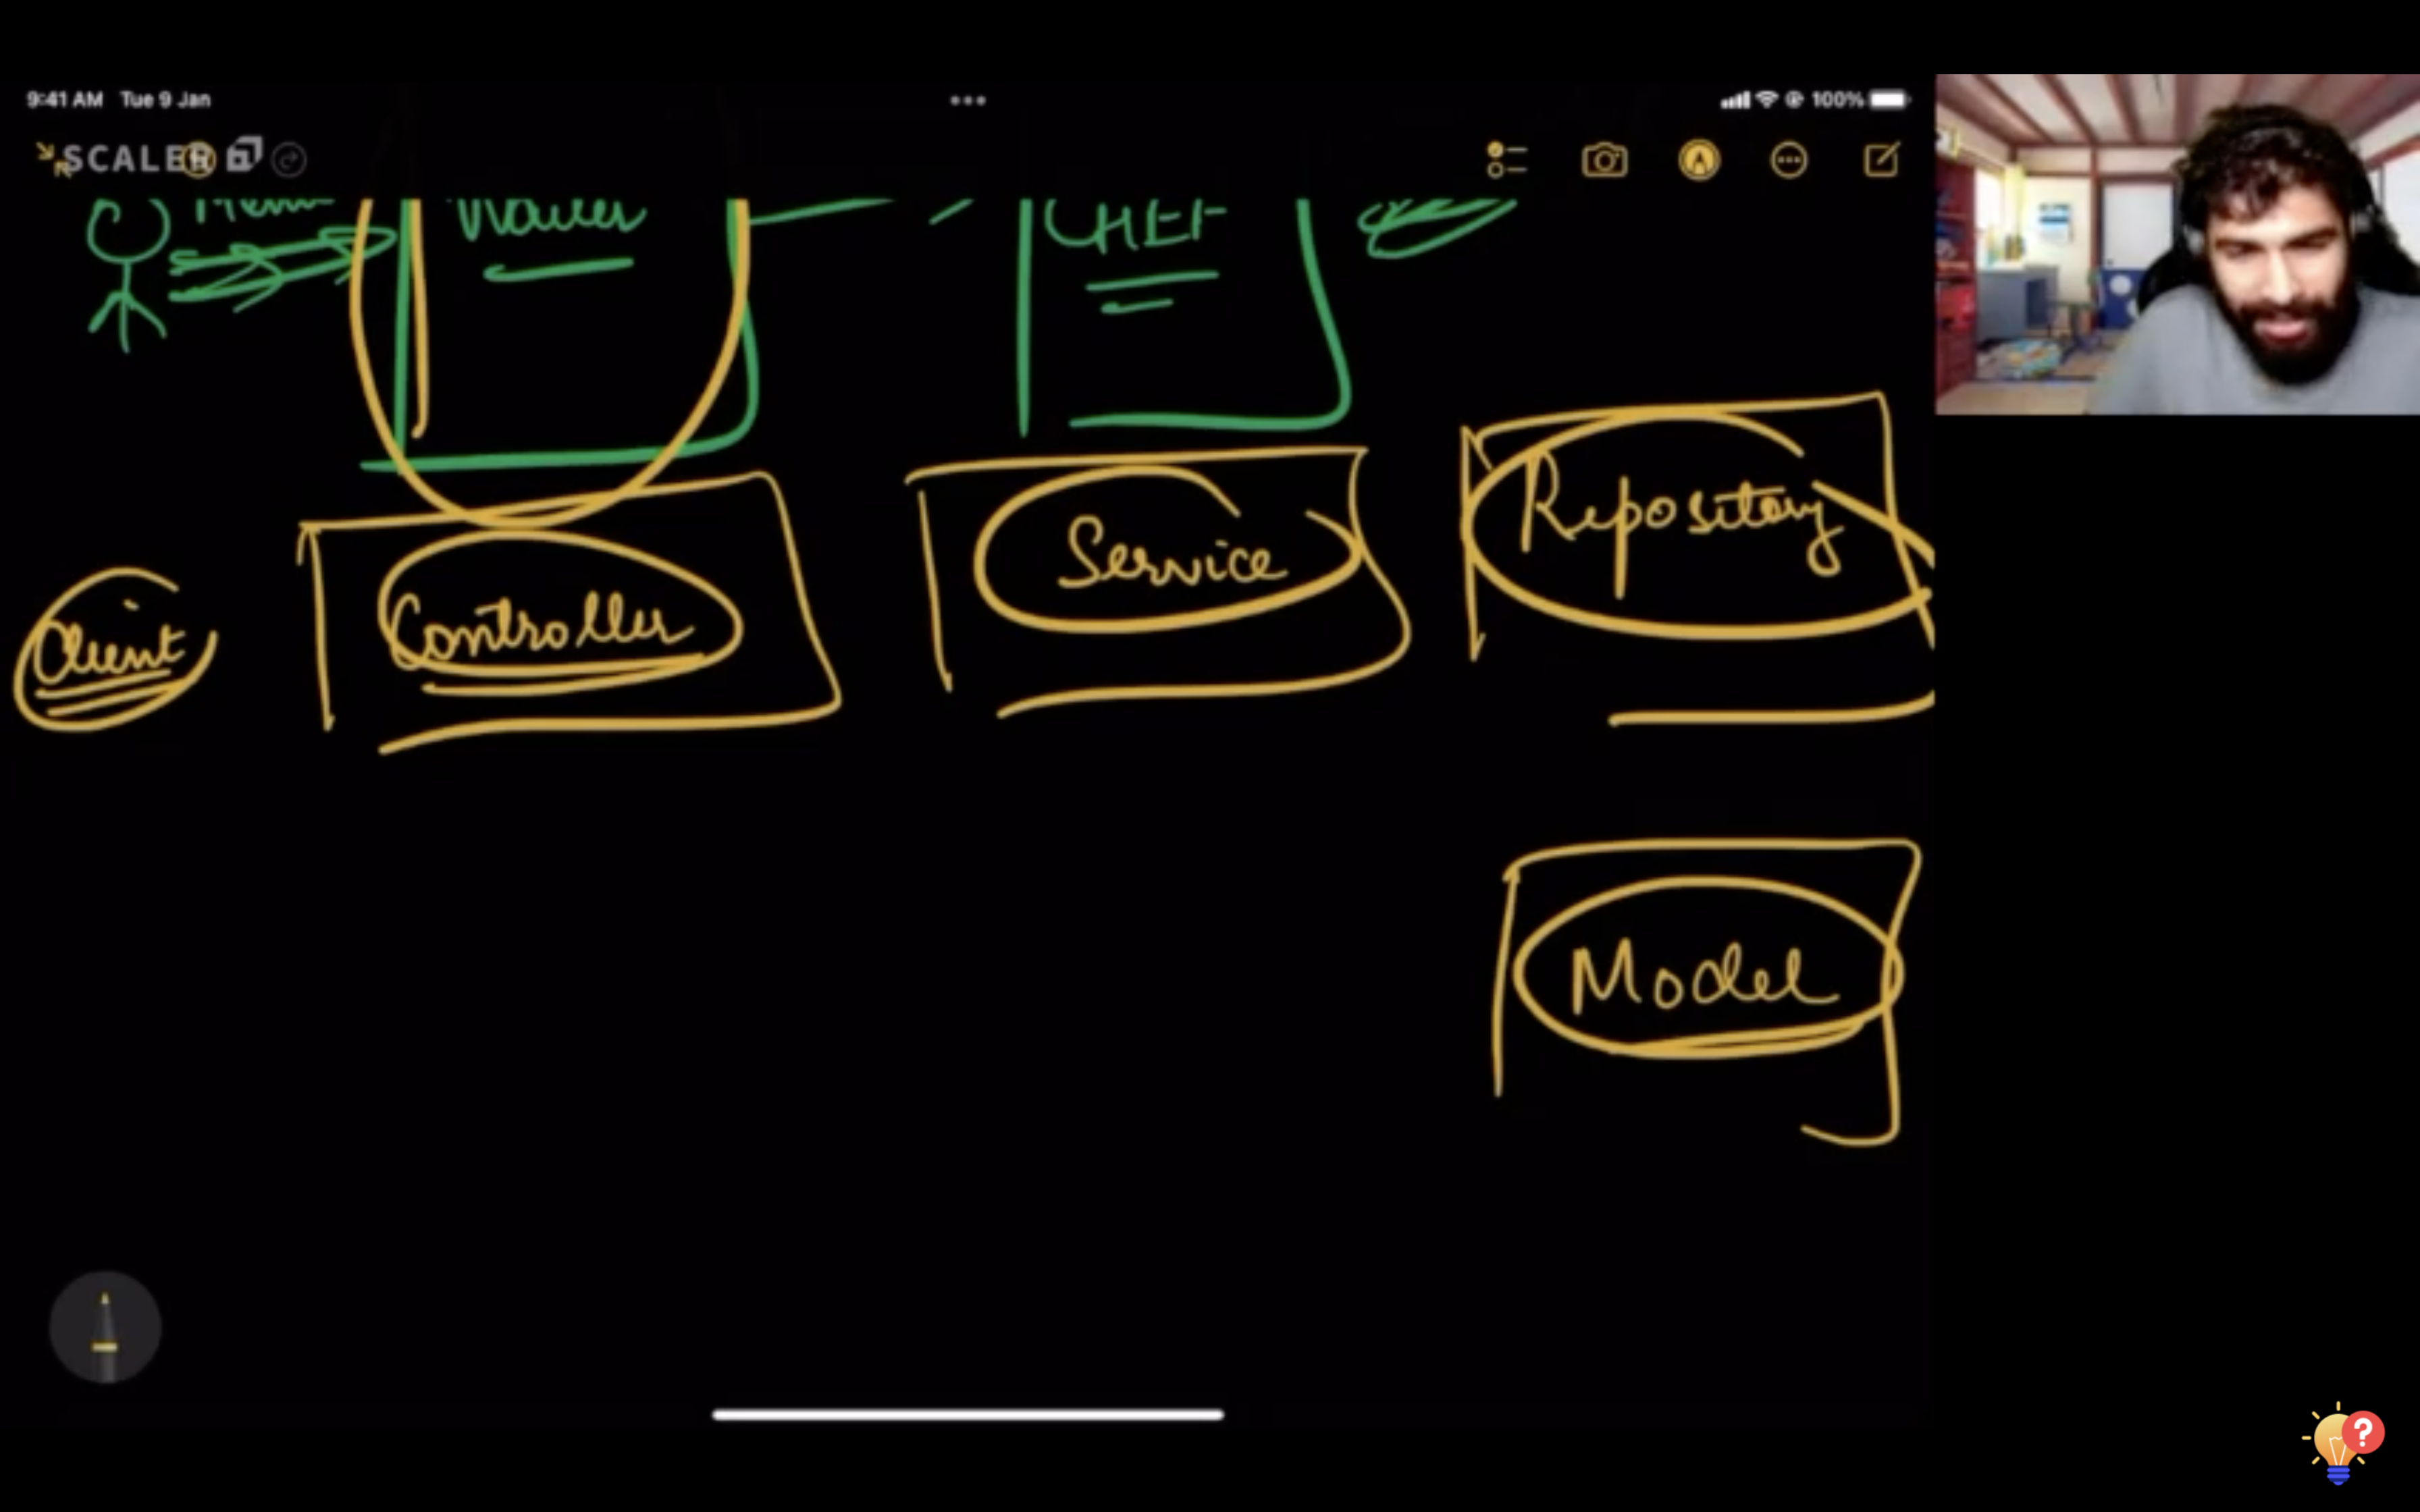 9:41 AM Tue 9 Jan
100%
SCALER
Menu
Waiter
CHEF
Client
Controller
Service
Repository
Model
?